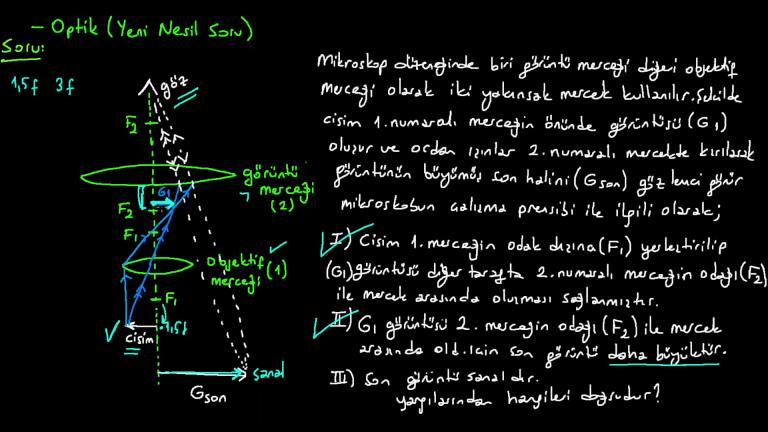 - Optik (Yeni Nesil Soru)
Soru:
1,5f 3f
göz
F2
görüntü
merceği
(2)
G1
F2
F1
Objektif (1)
merceği
F1
1,5f
cisim
sanal
Gson
Mikroskop düzeneğinde biri görüntü merceği diğeri objektif
merceği olarak iki yakınsak mercek kullanılır. Şekilde
cisim 1. numaralı merceğin önünde görüntüsü (G1)
oluşur ve ordan ışınlar 2. numaralı mercekte kırılarak
görüntünün büyümüş son halini (Gson) göz lenci görür
mikroskobun çalışma prensibi ile ilgili olarak;
I) Cisim 1. merceğin odak dışına (F1) yerleştirilip
(G1) görüntüsü diğer tarafta 2. numaralı merceğin odağı (F2)
ile mercek arasında olunması sağlanmıştır.
II) G1 görüntüsü 2. merceğin odağı (F2) ile mercek
arasında old. için son görüntü daha büyüktür.
III) Son görüntü sanaldır.
yargılarından hangileri doğrudur?